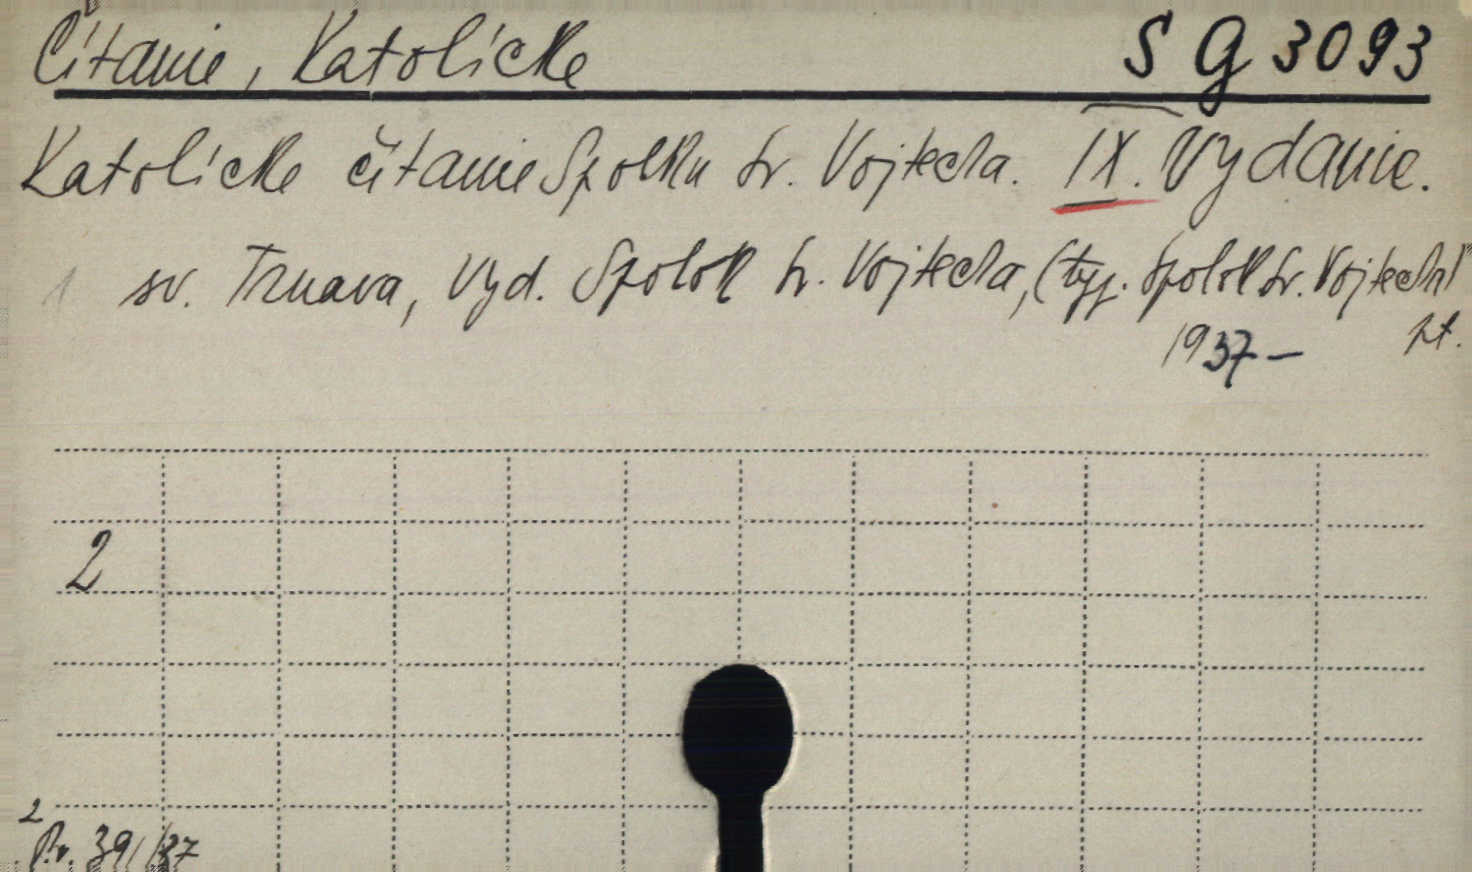 Čítanie, Katolícke SG3093
Katolícke čítanie Spolku Sv. Vojtecha. IX. Vydanie.
1 sv. Trnava, Vyd. Spolok Sv. Vojtecha, (typ. Spolok Sv. Vojtecha)
1937–
2
2
Pr. 39/37